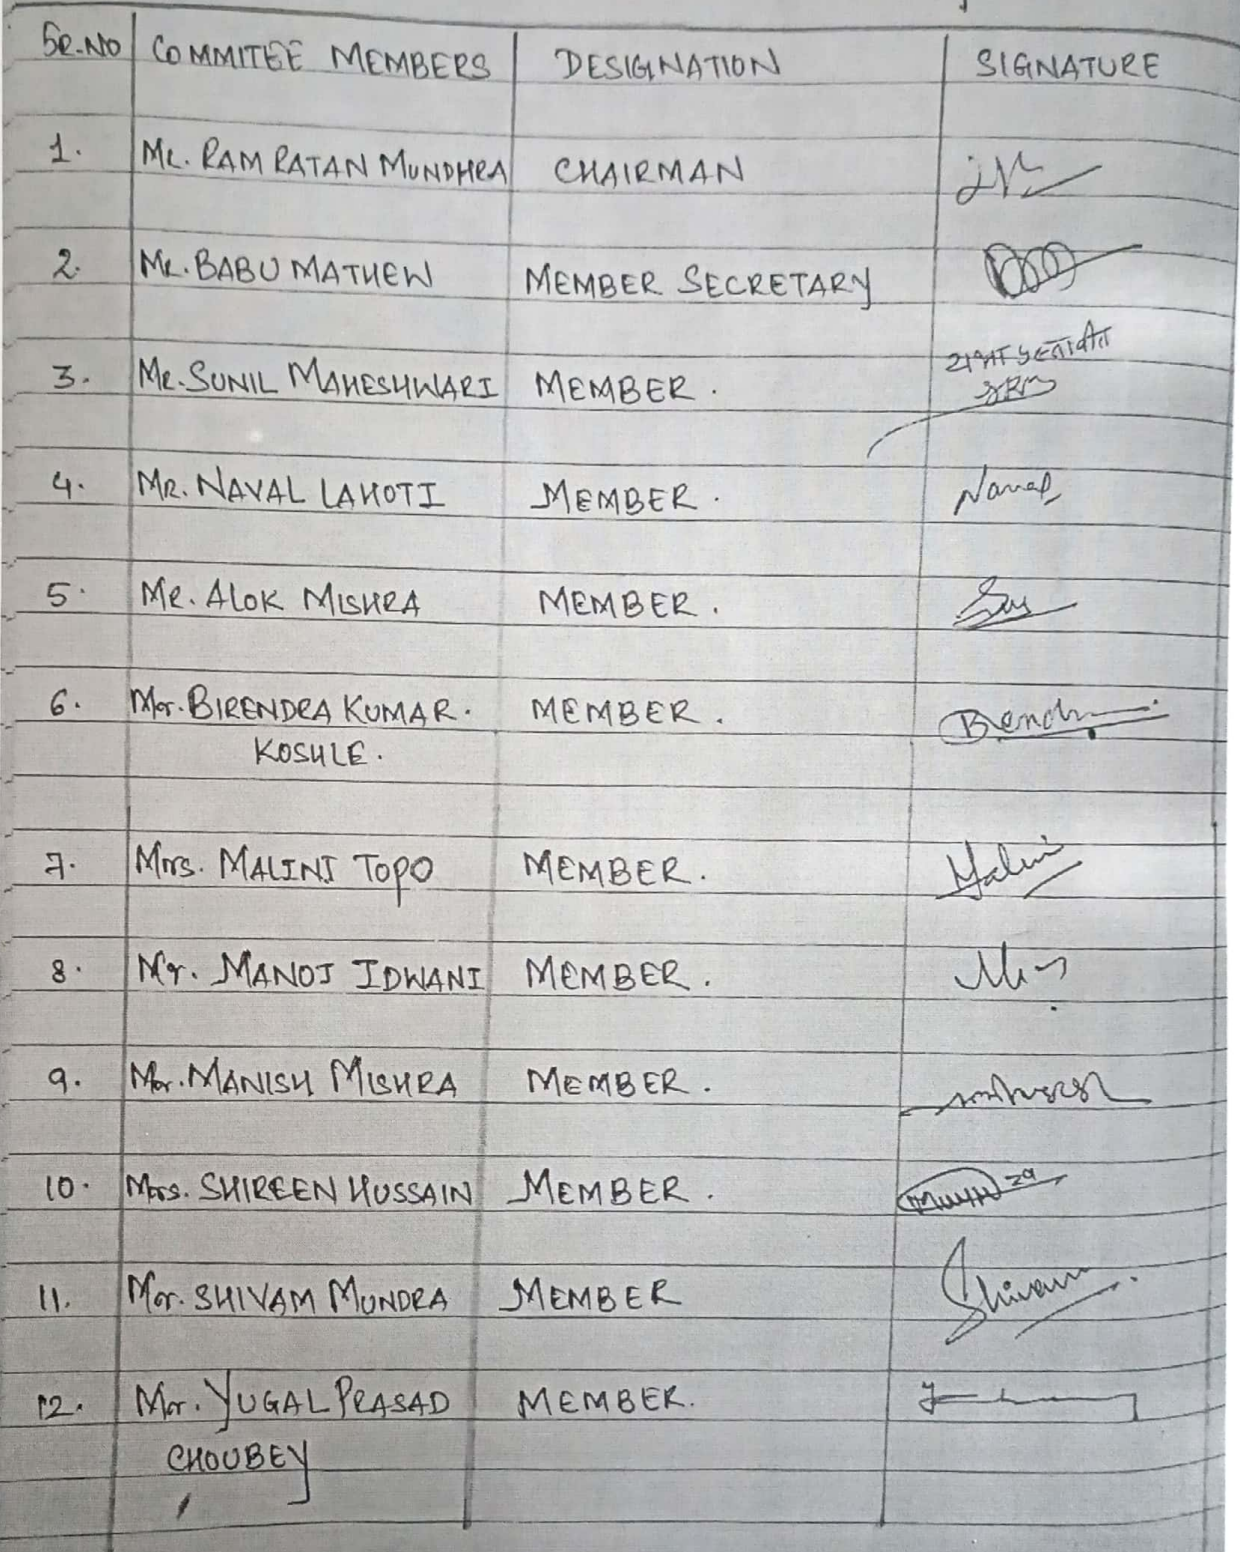 SR.NO COMMITEE MEMBERS DESIGNATION SIGNATURE
1. MR. RAM RATAN MUNDHRA CHAIRMAN
2. MR. BABU MATHEW MEMBER SECRETARY
3. MR. SUNIL MAHESHWARI MEMBER.
4. MR. NAVAL LAHOTI MEMBER. Naval
5. MR. ALOK MISHRA MEMBER.
6. Mr. BIRENDRA KUMAR. MEMBER.
KOSHLE.
7. Mrs. MALINI TOPO MEMBER. Malini
8. Mr. MANOJ IDWANI MEMBER.
9. Mr. MANISH MISHRA MEMBER.
10. Mrs. SHIREEN HUSSAIN MEMBER.
11. Mr. SHIVAM MUNDRA MEMBER Shivam
12. Mr. YUGAL PRASAD MEMBER.
CHOUBEY